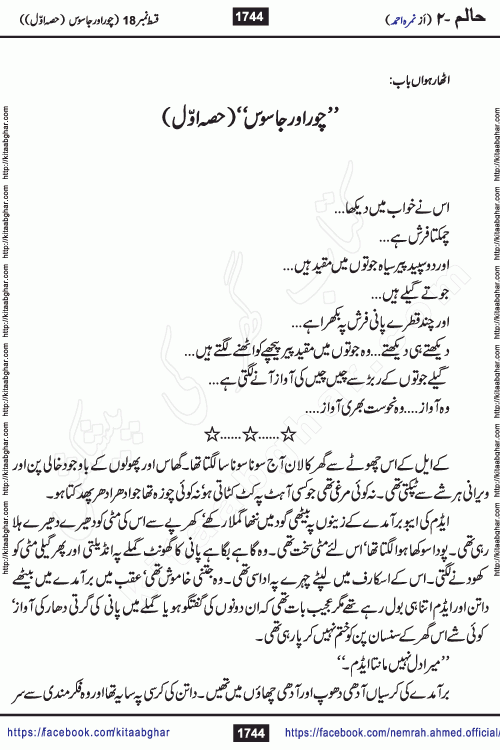 حالم -۲ (از نمرہ احمد) 1744 قسط نمبر 18 (چور اور جاسوس (حصہ اوّل))
اٹھارہواں باب:
”چور اور جاسوس“ (حصہ اوّل)
اس نے خواب میں دیکھا...
چمکتا فرش ہے...
اور دو سپید پیر سیاہ جوتوں میں مقید ہیں...
جوتے گیلے ہیں...
اور چند قطرے پانی فرش پہ بکھرا ہے...
دیکھتے ہی دیکھتے... وہ جوتوں میں مقید پیر پیچھے کو اٹھنے لگتے ہیں...
گیلے جوتوں کے ربڑ سے چیں چیں کی آواز آنے لگتی ہے...
وہ آواز.... وہ نحوست بھری آواز....
☆......☆......☆
کے ایل کے اس چھوٹے سے گھر کا لان آج سونا سونا سا لگتا تھا۔ گھاس اور پھولوں کے باوجود خالی پن اور
ویرانی ہر شے سے ٹپکتی تھی۔ نہ کوئی مرغی تھی جو کسی آہٹ پہ کٹ کٹاتی ہو نہ کوئی چوزہ تھا جو ادھر ادھر پھدکتا ہو۔
ایڈم کی ایبو برآمدے کے زینوں پہ بیٹھی گود میں ننھا گملا رکھے‘ کھرپے سے اس کی مٹی کو دھیرے دھیرے ہلا
رہی تھی۔ پودا سوکھا ہوا لگتا تھا‘ اس لئے مٹی سخت تھی۔ وہ گاہے بگاہے پانی کا گھونٹ گملے پہ انڈیلتی اور پھر گیلی مٹی کو
کھودنے لگتی۔ اس کے اسکارف میں لپٹے چہرے پہ اداسی تھی۔ وہ جتنی خاموش تھی‘ عقب میں برآمدے میں بیٹھے
داتن اور ایڈم اتنا ہی بول رہے تھے مگر عجیب بات تھی کہ ان دونوں کی گفتگو ہو یا گملے میں پانی کی گرتی دھار کی آواز‘
کوئی شے اس گھر کے سنسان پن کو ختم نہیں کر پا رہی تھی۔
”میرا دل نہیں مانتا ایڈم۔“
برآمدے کی کرسیاں آدھی دھوپ اور آدھی چھاؤں میں تھیں۔ داتن کی کرسی پہ سایہ تھا اور وہ فکرمندی سے سر
https://facebook.com/kitaabghar 1744 https://facebook.com/nemrah.ahmed.official/
http://kitaabghar.com http://kitaabghar.com http://kitaabghar.com http://kitaabghar.com http://kitaabghar.com http://kitaabghar.com
http://kitaabghar.com http://kitaabghar.com http://kitaabghar.com http://kitaabghar.com http://kitaabghar.com http://kitaabghar.com